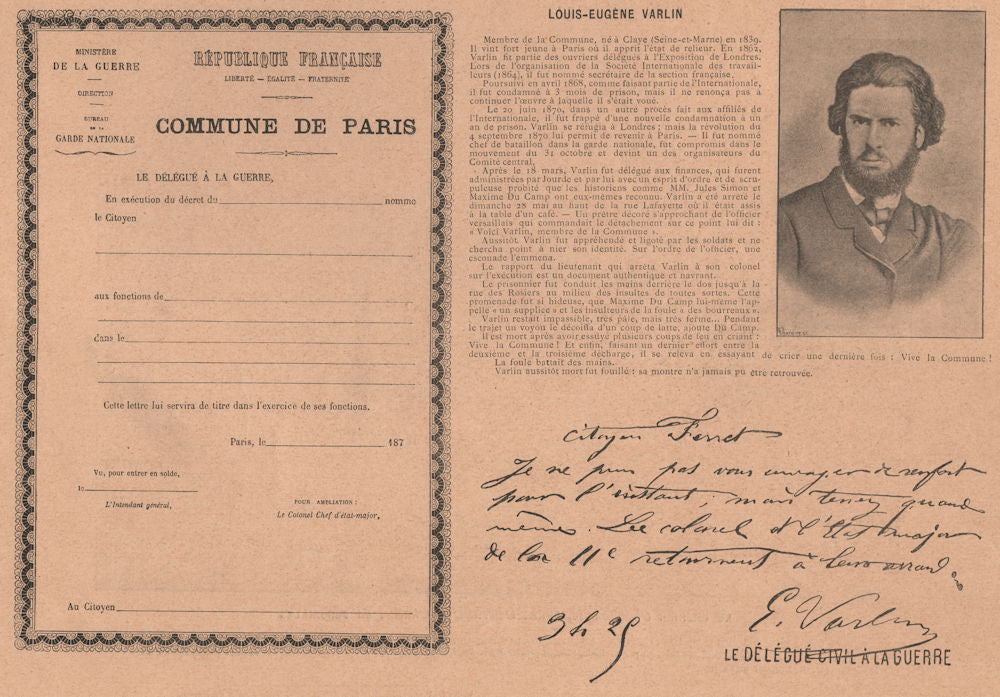 MINISTÈRE
DE LA GUERRE
DIRECTION
BUREAU
DE LA
GARDE NATIONALE
RÉPUBLIQUE FRANÇAISE
LIBERTÉ — ÉGALITÉ — FRATERNITÉ
COMMUNE DE PARIS
LE DÉLÉGUÉ À LA GUERRE,
En exécution du décret du nomme
le Citoyen
aux fonctions de
dans le
Cette lettre lui servira de titre dans l'exercice de ses fonctions.
Paris, le 187
Vu, pour entrer en solde,
le
L'Intendant général,
POUR AMPLIATION :
Le Colonel Chef d'état-major,
Au Citoyen
LOUIS-EUGÈNE VARLIN
Membre de la Commune, né à Claye (Seine-et-Marne) en 1839.
Il vint fort jeune à Paris où il apprit l'état de relieur. En 1862,
Varlin fit partie des ouvriers délégués à l'Exposition de Londres.
Lors de l'organisation de la Société Internationale des travail-
leurs (1864), il fut nommé secrétaire de la section française.
Poursuivi en avril 1868, comme faisant partie de l'Internationale,
il fut condamné à 3 mois de prison, mais il ne renonça pas à
continuer l'œuvre à laquelle il s'était voué.
Le 20 juin 1870, dans un autre procès fait aux affiliés de
l'Internationale, il fut frappé d'une nouvelle condamnation à un
an de prison. Varlin se réfugia à Londres ; mais la révolution du
4 septembre 1870 lui permit de revenir à Paris. — Il fut nommé
chef de bataillon dans la garde nationale, fut compromis dans le
mouvement du 31 octobre et devint un des organisateurs du
Comité central.
Après le 18 mars, Varlin fut délégué aux finances, qui furent
administrées par Jourde et par lui avec un esprit d'ordre et de scru-
puleuse probité que les historiens comme MM. Jules Simon et
Maxime Du Camp ont eux-mêmes reconnu. Varlin a été arrêté le
dimanche 28 mai au haut de la rue Lafayette où il était assis
à la table d'un café. — Un prêtre décoré s'approchant de l'officier
versaillais qui commandait le détachement sur ce point lui dit :
« Voici Varlin, membre de la Commune ».
Aussitôt Varlin fut appréhendé et ligoté par les soldats et ne
chercha point à nier son identité. Sur l'ordre de l'officier, une
escouade l'emmena.
Le rapport du lieutenant qui arrêta Varlin à son colonel
sur l'exécution est un document authentique et navrant.
Le prisonnier fut conduit les mains derrière le dos jusqu'à la
rue des Rosiers au milieu des insultes de toutes sortes. Cette
promenade fut si hideuse, que Maxime Du Camp lui-même l'ap-
pelle « un supplice » et les insulteurs de la foule « des bourreaux ».
Varlin restait impassible, très pâle, mais très ferme... Pendant
le trajet un voyou le décoiffa d'un coup de latte, ajoute Du Camp.
Il est mort après avoir essuyé plusieurs coups de feu en criant :
Vive la Commune ! Et enfin, faisant un dernier effort entre la
deuxième et la troisième décharge, il se releva en essayant de crier une dernière fois : Vive la Commune !
La foule battait des mains.
Varlin aussitôt mort fut fouillé : sa montre n'a jamais pu être retrouvée.
citoyen Ferret
Je ne puis pas vous envoyer de renfort
pour l'instant ; mais tenez quand
même. Le colonel et l'Etat major
de la 11e retournent à leur arrond.
E. Varlin
3 h 25
LE DÉLÉGUÉ CIVIL À LA GUERRE